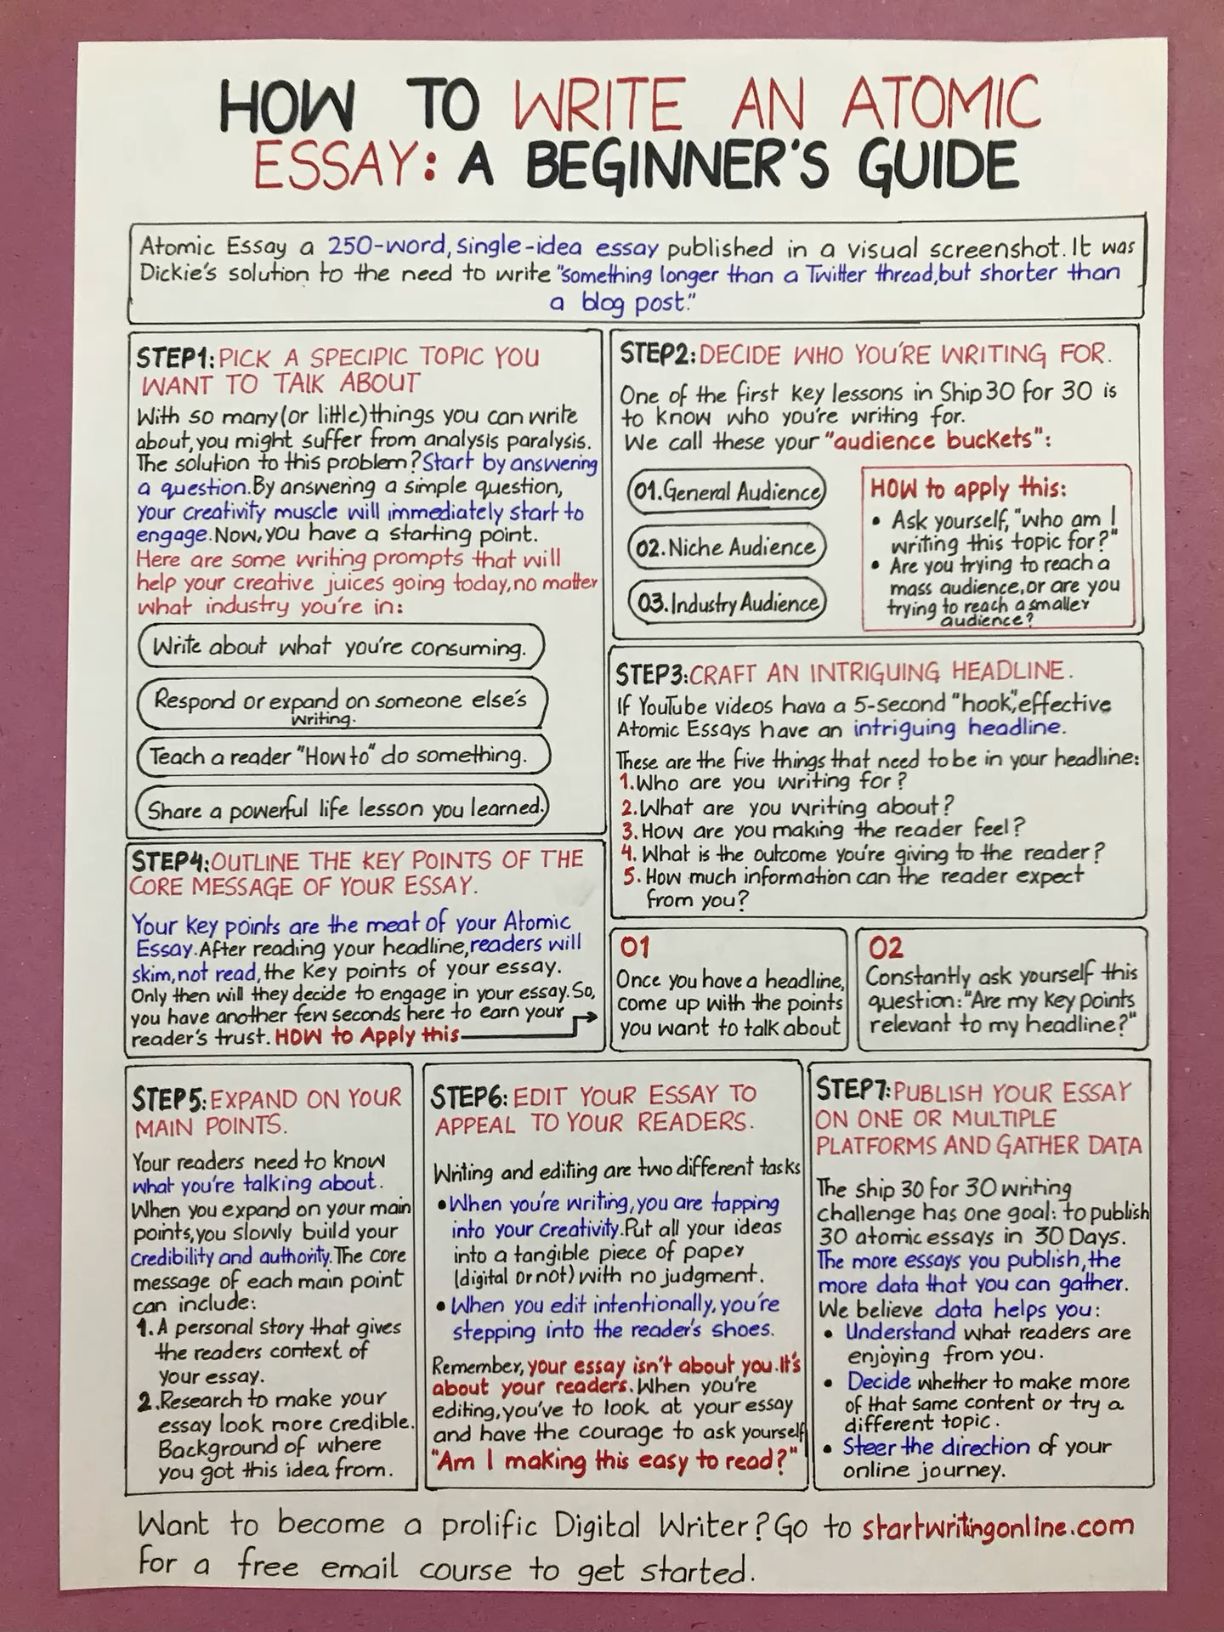 HOW TO WRITE AN ATOMIC
ESSAY: A BEGINNER'S GUIDE
Atomic Essay a 250-word, single-idea essay published in a visual screenshot. It was
Dickie's solution to the need to write "something longer than a Twitter thread, but shorter than
a blog post."
STEP1: PICK A SPECIFIC TOPIC YOU
WANT TO TALK ABOUT
With so many (or little) things you can write
about, you might suffer from analysis paralysis.
The solution to this problem? Start by answering
a question. By answering a simple question,
your creativity muscle will immediately start to
engage. Now, you have a starting point.
Here are some writing prompts that will
help your creative juices going today, no matter
what industry you're in:
Write about what you're consuming.
Respond or expand on someone else's
writing.
Teach a reader "How to" do something.
Share a powerful life lesson you learned.
STEP2: DECIDE WHO YOU'RE WRITING FOR.
One of the first key lessons in Ship 30 for 30 is
to know who you're writing for.
We call these your "audience buckets":
01. General Audience
02. Niche Audience
03. Industry Audience
HOW to apply this:
• Ask yourself, "who am I
writing this topic for?"
• Are you trying to reach a
mass audience, or are you
trying to reach a smaller
audience?
STEP3: CRAFT AN INTRIGUING HEADLINE.
If YouTube videos hava a 5-second "hook", effective
Atomic Essays have an intriguing headline.
These are the five things that need to be in your headline:
1. Who are you writing for?
2. What are you writing about?
3. How are you making the reader feel?
4. What is the outcome you're giving to the reader?
5. How much information can the reader expect
from you?
STEP4: OUTLINE THE KEY POINTS OF THE
CORE MESSAGE OF YOUR ESSAY.
Your key points are the meat of your Atomic
Essay. After reading your headline, readers will
skim, not read, the key points of your essay.
Only then will they decide to engage in your essay. So,
you have another few seconds here to earn your
reader's trust. HOW to Apply this
01
Once you have a headline,
come up with the points
you want to talk about
02
Constantly ask yourself this
question: "Are my key points
relevant to my headline?"
STEP5: EXPAND ON YOUR
MAIN POINTS.
Your readers need to know
what you're talking about.
When you expand on your main
points, you slowly build your
credibility and authority. The core
message of each main point
can include:
1. A personal story that gives
the readers context of
your essay.
2. Research to make your
essay look more credible.
Background of where
you got this idea from.
STEP6: EDIT YOUR ESSAY TO
APPEAL TO YOUR READERS.
Writing and editing are two different tasks
• When you're writing, you are tapping
into your creativity. Put all your ideas
into a tangible piece of paper
(digital or not) with no judgment.
• When you edit intentionally, you're
stepping into the reader's shoes.
Remember, your essay isn't about you. It's
about your readers. When you're
editing, you've to look at your essay
and have the courage to ask yourself
"Am I making this easy to read?"
STEP7: PUBLISH YOUR ESSAY
ON ONE OR MULTIPLE
PLATFORMS AND GATHER DATA
The ship 30 for 30 writing
challenge has one goal: to publish
30 atomic essays in 30 Days.
The more essays you publish, the
more data that you can gather.
We believe data helps you:
• Understand what readers are
enjoying from you.
• Decide whether to make more
of that same content or try a
different topic.
• Steer the direction of your
online journey.
Want to become a prolific Digital Writer? Go to startwritingonline.com
for a free email course to get started.